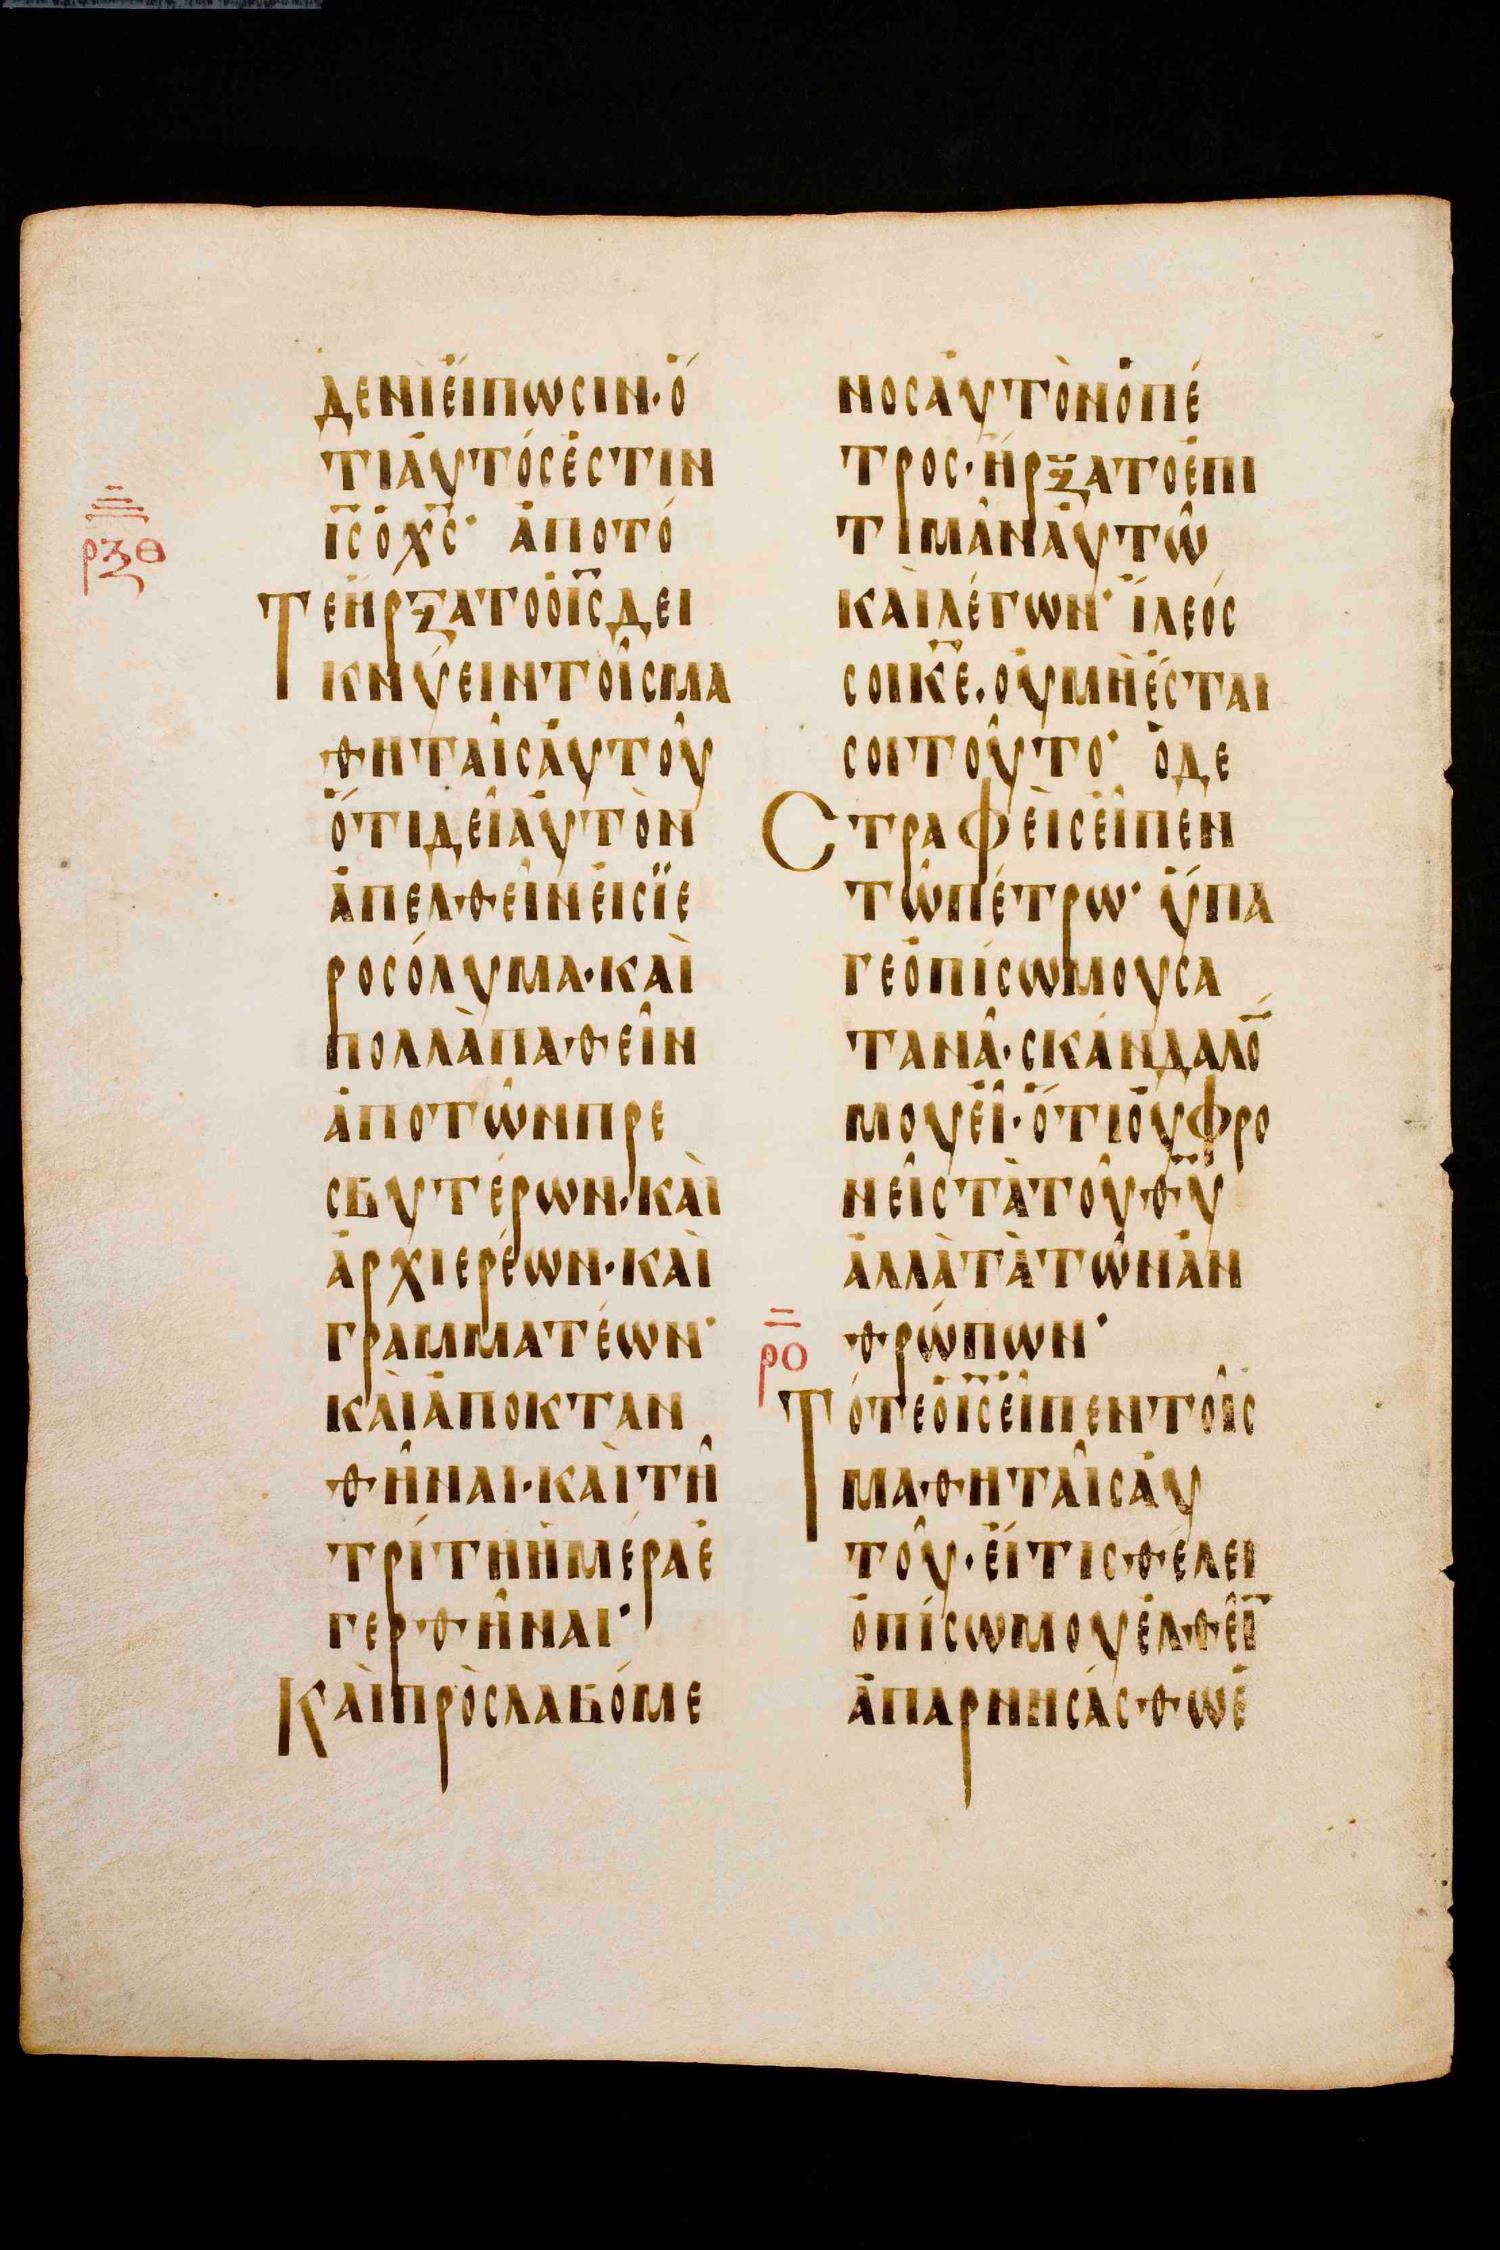 ρξθ
ΔΕΝῚΕἼΠΩϹΙΝ·Ὅ
ΤΙΑΥ̓ΤΌϹἘϹΤΙΝ
ΙϹ̅ὉΧϹ̅· ἈΠΟΤΌ
ΤΕἬΡΞΑΤΟὉΙϹ̅ΔΕΙ
ΚΝΎΕΙΝΤΟΙ͂ϹΜΑ
ΘΗΤΑΙ͂ϹΑΥ̓ΤΟΥ͂
ὍΤΙΔΕΙ͂ΑΥ̓ΤῸΝ
ἈΠΕΛΘΕΙ͂ΝΕἸϹΪΕ
ΡΟϹΌΛΥΜΑ·ΚΑῚ
ΠΟΛΛᾺΠΑΘΕΙ͂Ν
ἈΠΟΤΩ͂ΝΠΡΕ
ϹΒΥΤΈΡΩΝ·ΚΑῚ
ἈΡΧΙΕΡΈΩΝ·ΚΑῚ
ΓΡΑΜΜΑΤΈΩΝ·
ΚΑῚἈΠΟΚΤΑΝ
ΘΗ͂ΝΑΙ·ΚΑῚΤΗ͂
ΤΡΊΤΗἩΜΈΡΑἘ
ΓΕΡΘΗ͂ΝΑΙ·
ΚΑῚΠΡΟϹΛΑΒΌΜΕ
ΝΟϹΑΥ̓ΤῸΝὉΠΈ
ΤΡΟϹ·ἬΡΞΑΤΟἘΠΙ
ΤΙΜΑ͂ΝΑΥ̓ΤΩ͂
ΚΑῚΛΈΓΩΝ· ἽΛΕΌϹ
ϹΟΙΚΕ̅·ΟΥΜῊἜϹΤΑΙ
ϹΟΙΤΟΥ͂ΤΟ· ὉΔΕ
ϹΤΡΑΦΕῚϹΕἾΠΕΝ
ΤΩ͂ΠΈΤΡΩ· ὝΠΑ
ΓΕὈΠΊϹΩΜΟΥϹΑ
ΤΑΝΑ͂·ϹΚΆΝΔΑΛΟ̅
ΜΟΥΕἾ·ὍΤΙΟΥ̓ΦΡΟ
ΝΕΙ͂ϹΤᾺΤΟΥ͂ΘΥ̅
ἈΛΛᾺΤᾺΤΩ͂ΝἈΝ
ΘΡΏΠΩΝ·
ρο
ΤΌΤΕὉΙϹ̅ΕἾΠΕΝΤΟΙ͂Ϲ
ΜΑΘΗΤΑΙ͂ϹΑΥ̓
ΤΟΥ͂·ΕἼΤΙϹΘΈΛΕΙ
ὈΠΊϹΩΜΟΥἘΛΘΕΙ͂̅
ἈΠΑΡΝΗϹΆϹΘΩἙ